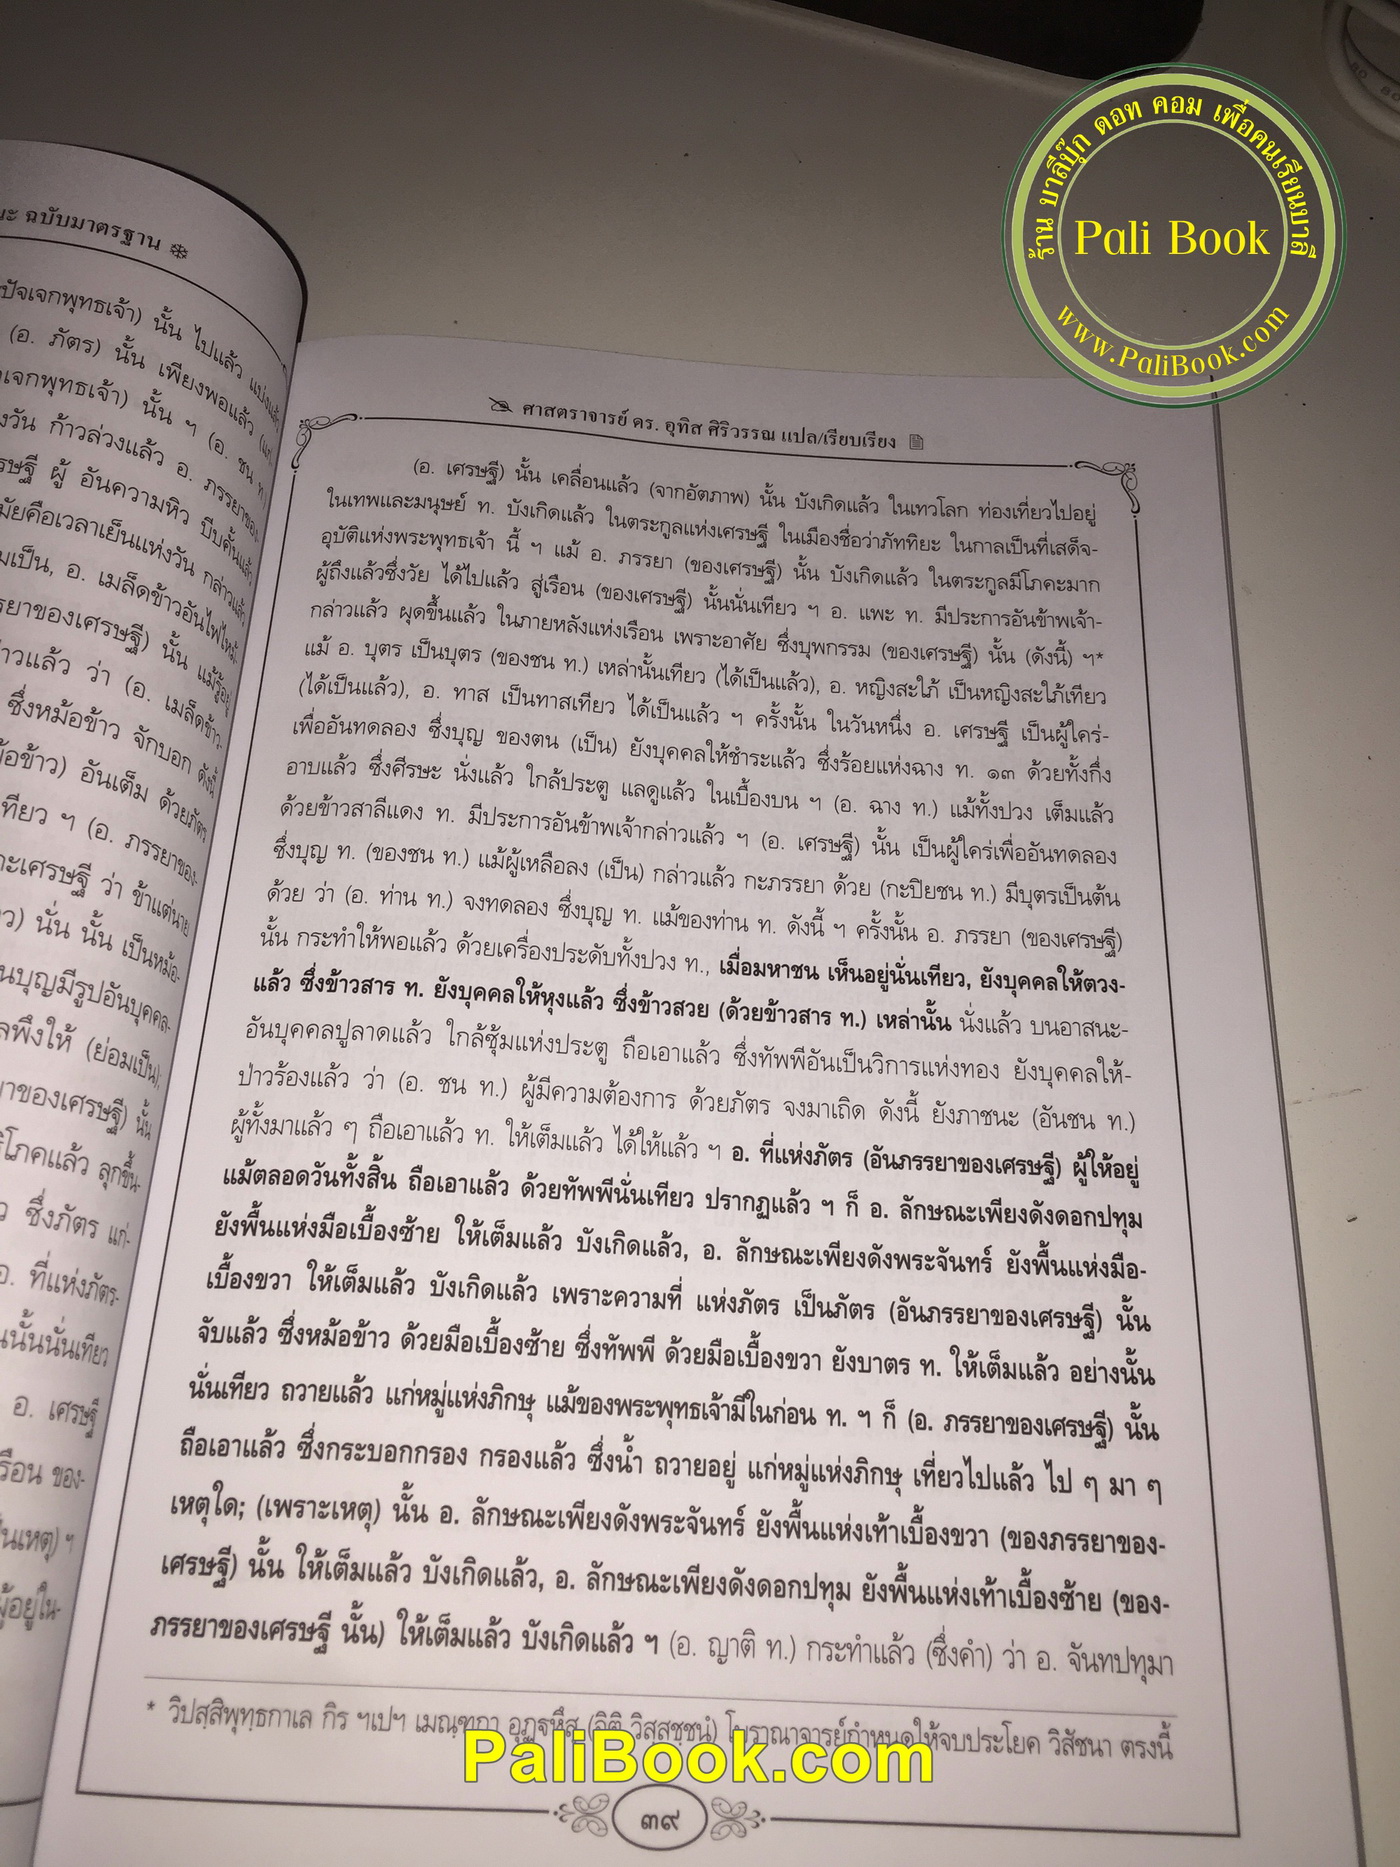 ร้าน บาลีบุ๊ก ดอท คอม เพื่อคนเรียนบาลี
Pali Book
www.PaliBook.com
นะ ฉบับมาตรฐาน
ปัจเจกพุทธเจ้า) นั้น ไปแล้ว แบ่งแล้ว
(อ. ภัตร) นั้น เพียงพอแล้ว (แก่
เจกพุทธเจ้า) นั้น ฯ (อ. ชน ท.)
งวัน ก้าวล่วงแล้ว อ. ภรรยาของ-
รษฐี ผู้ อันความหิว บีบคั้นแล้ว
มัยคือเวลาเย็นแห่งวัน กล่าวแล้ว
มเป็น, อ. เมล็ดข้าวอันไฟไหม้-
รยาของเศรษฐี) นั้น แม้รู้อยู่
าวแล้ว ว่า (อ. เมล็ดข้าว-
ซึ่งหม้อข้าว จักบอก ดังนี้
ม้อข้าว) อันเต็ม ด้วยภัตร
ทียว ฯ (อ. ภรรยาของ-
กะเศรษฐี ว่า ข้าแต่นาย
ว) นั่น นั้น เป็นหม้อ-
นบุญมีรูปอันบุคคล-
ลพึงให้ (ย่อมเป็น);
ยาของเศรษฐี) นั้น
ริโภคแล้ว ลุกขึ้น-
ว ซึ่งภัตร แก่-
อ. ที่แห่งภัตร-
นนั้นนั่นเทียว
อ. เศรษฐี
รือน ของ-
ป็นเหตุ) ฯ
ผู้อยู่ใน-
ศาสตราจารย์ ดร. อุทิส ศิริวรรณ แปล/เรียบเรียง
(อ. เศรษฐี) นั้น เคลื่อนแล้ว (จากอัตภาพ) นั้น บังเกิดแล้ว ในเทวโลก ท่องเที่ยวไปอยู่
ในเทพและมนุษย์ ท. บังเกิดแล้ว ในตระกูลแห่งเศรษฐี ในเมืองชื่อว่าภัททิยะ ในกาลเป็นที่เสด็จ-
อุบัติแห่งพระพุทธเจ้า นี้ ฯ แม้ อ. ภรรยา (ของเศรษฐี) นั้น บังเกิดแล้ว ในตระกูลมีโภคะมาก
ผู้ถึงแล้วซึ่งวัย ได้ไปแล้ว สู่เรือน (ของเศรษฐี) นั้นนั่นเทียว ฯ อ. แพะ ท. มีประการอันข้าพเจ้า-
กล่าวแล้ว ผุดขึ้นแล้ว ในภายหลังแห่งเรือน เพราะอาศัย ซึ่งบุพกรรม (ของเศรษฐี) นั้น (ดังนี้) ฯ*
แม้ อ. บุตร เป็นบุตร (ของชน ท.) เหล่านั้นเทียว (ได้เป็นแล้ว), อ. หญิงสะใภ้ เป็นหญิงสะใภ้เทียว
(ได้เป็นแล้ว), อ. ทาส เป็นทาสเทียว ได้เป็นแล้ว ฯ ครั้งนั้น ในวันหนึ่ง อ. เศรษฐี เป็นผู้ใคร่-
เพื่ออันทดลอง ซึ่งบุญ ของตน (เป็น) ยังบุคคลให้ชำระแล้ว ซึ่งร้อยแห่งฉาง ท. ๑๓ ด้วยทั้งกึ่ง
อาบแล้ว ซึ่งศีรษะ นั่งแล้ว ใกล้ประตู แลดูแล้ว ในเบื้องบน ฯ (อ. ฉาง ท.) แม้ทั้งปวง เต็มแล้ว
ด้วยข้าวสาลีแดง ท. มีประการอันข้าพเจ้ากล่าวแล้ว ฯ (อ. เศรษฐี) นั้น เป็นผู้ใคร่เพื่ออันทดลอง
ซึ่งบุญ ท. (ของชน ท.) แม้ผู้เหลือลง (เป็น) กล่าวแล้ว กะภรรยา ด้วย (กะปิยชน ท.) มีบุตรเป็นต้น
ด้วย ว่า (อ. ท่าน ท.) จงทดลอง ซึ่งบุญ ท. แม้ของท่าน ท. ดังนี้ ฯ ครั้งนั้น อ. ภรรยา (ของเศรษฐี)
นั้น กระทำให้พอแล้ว ด้วยเครื่องประดับทั้งปวง ท., เมื่อมหาชน เห็นอยู่นั่นเทียว, ยังบุคคลให้ตวง-
แล้ว ซึ่งข้าวสาร ท. ยังบุคคลให้หุงแล้ว ซึ่งข้าวสวย (ด้วยข้าวสาร ท.) เหล่านั้น นั่งแล้ว บนอาสนะ-
อันบุคคลปูลาดแล้ว ใกล้ซุ้มแห่งประตู ถือเอาแล้ว ซึ่งทัพพีอันเป็นวิการแห่งทอง ยังบุคคลให้-
ป่าวร้องแล้ว ว่า (อ. ชน ท.) ผู้มีความต้องการ ด้วยภัตร จงมาเถิด ดังนี้ ยังภาชนะ (อันชน ท.)
ผู้ทั้งมาแล้ว ๆ ถือเอาแล้ว ท. ให้เต็มแล้ว ได้ให้แล้ว ฯ อ. ที่แห่งภัตร (อันภรรยาของเศรษฐี) ผู้ให้อยู่
แม้ตลอดวันทั้งสิ้น ถือเอาแล้ว ด้วยทัพพีนั่นเทียว ปรากฏแล้ว ฯ ก็ อ. ลักษณะเพียงดังดอกปทุม
ยังพื้นแห่งมือเบื้องซ้าย ให้เต็มแล้ว บังเกิดแล้ว, อ. ลักษณะเพียงดังพระจันทร์ ยังพื้นแห่งมือ-
เบื้องขวา ให้เต็มแล้ว บังเกิดแล้ว เพราะความที่ แห่งภัตร เป็นภัตร (อันภรรยาของเศรษฐี) นั้น
จับแล้ว ซึ่งหม้อข้าว ด้วยมือเบื้องซ้าย ซึ่งทัพพี ด้วยมือเบื้องขวา ยังบาตร ท. ให้เต็มแล้ว อย่างนั้น
นั่นเทียว ถวายแล้ว แก่หมู่แห่งภิกษุ แม้ของพระพุทธเจ้ามีในก่อน ท. ฯ ก็ (อ. ภรรยาของเศรษฐี) นั้น
ถือเอาแล้ว ซึ่งกระบอกกรอง กรองแล้ว ซึ่งน้ำ ถวายอยู่ แก่หมู่แห่งภิกษุ เที่ยวไปแล้ว ไป ๆ มา ๆ
เหตุใด; (เพราะเหตุ) นั้น อ. ลักษณะเพียงดังพระจันทร์ ยังพื้นแห่งเท้าเบื้องขวา (ของภรรยาของ-
เศรษฐี) นั้น ให้เต็มแล้ว บังเกิดแล้ว, อ. ลักษณะเพียงดังดอกปทุม ยังพื้นแห่งเท้าเบื้องซ้าย (ของ-
ภรรยาของเศรษฐี นั้น) ให้เต็มแล้ว บังเกิดแล้ว ฯ (อ. ญาติ ท.) กระทำแล้ว (ซึ่งคำ) ว่า อ. จันทปทุมา
* วิปสฺสิพุทฺธกาเล กิร ฯเปฯ เมณฺฑกา อุฏฺฐหึสุ (อิติ วิสฺสชฺชนํ) โบราณาจารย์กำหนดให้จบประโยค วิสัชนา ตรงนี้
PaliBook.com
๓๙